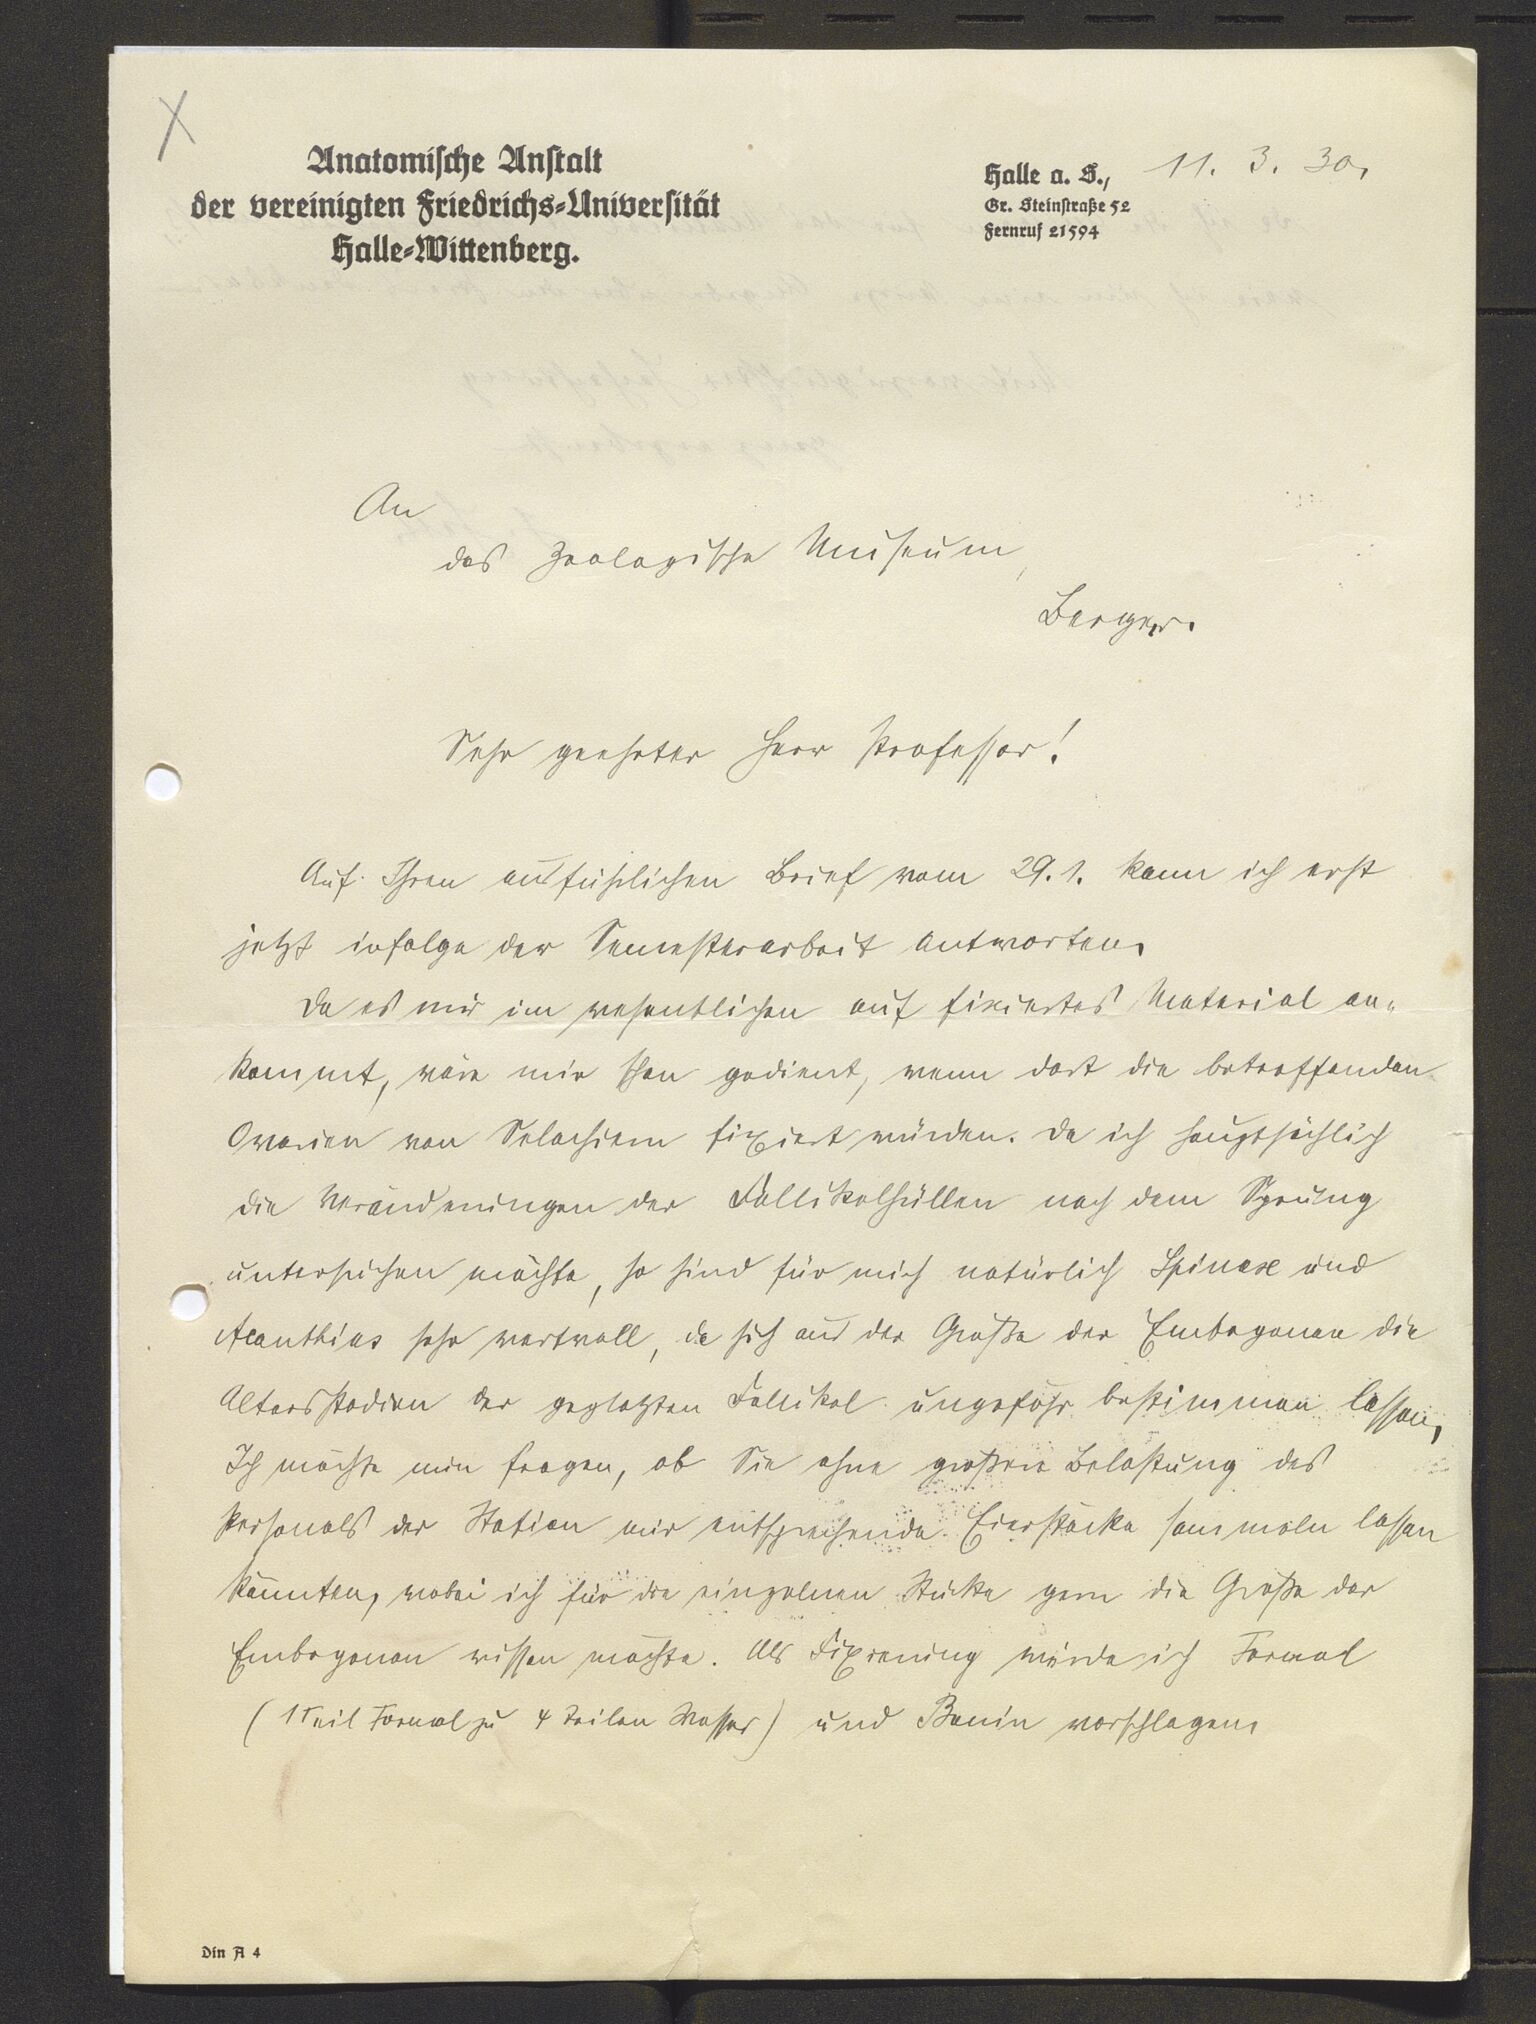 Anatomische Anstalt
der vereinigten Friedrichs-Universität
Halle-Wittenberg.
Halle a. S., 11. 3. 30.
Gr. Steinstraße 52
Fernruf 21594
An
das Zoologische Museum,
Bergen.
Sehr geehrter Herr Professor!
Auf Ihren ausführlichen Brief vom 29.1. kann ich erst
jetzt infolge der Semesterarbeit antworten.
Da es mir im wesentlichen auf fixiertes Material an-
kommt, wäre mir schon gedient, wenn dort die betreffenden
Ovarien von Selachiern fixiert würden. Da ich hauptsächlich
die Veränderungen der Follikelhüllen nach dem Sprung
untersuchen möchte, so sind für mich natürlich Spinax und
Acanthias sehr wertvoll, da sich aus der Größe der Embryonen die
Altersstadien der geplatzten Follikel ungefähr bestimmen lassen.
Ich möchte nun fragen, ob Sie ohne größere Belastung des
Personals der Station mir entsprechende Eierstöcke sammeln lassen
könnten, wobei ich für die einzelnen Stücke gern die Größe der
Embryonen wissen möchte. Als Fixierung würde ich Formol
(1 Teil Formol zu 4 Teilen Wasser) und Bouin vorschlagen.
Din A 4